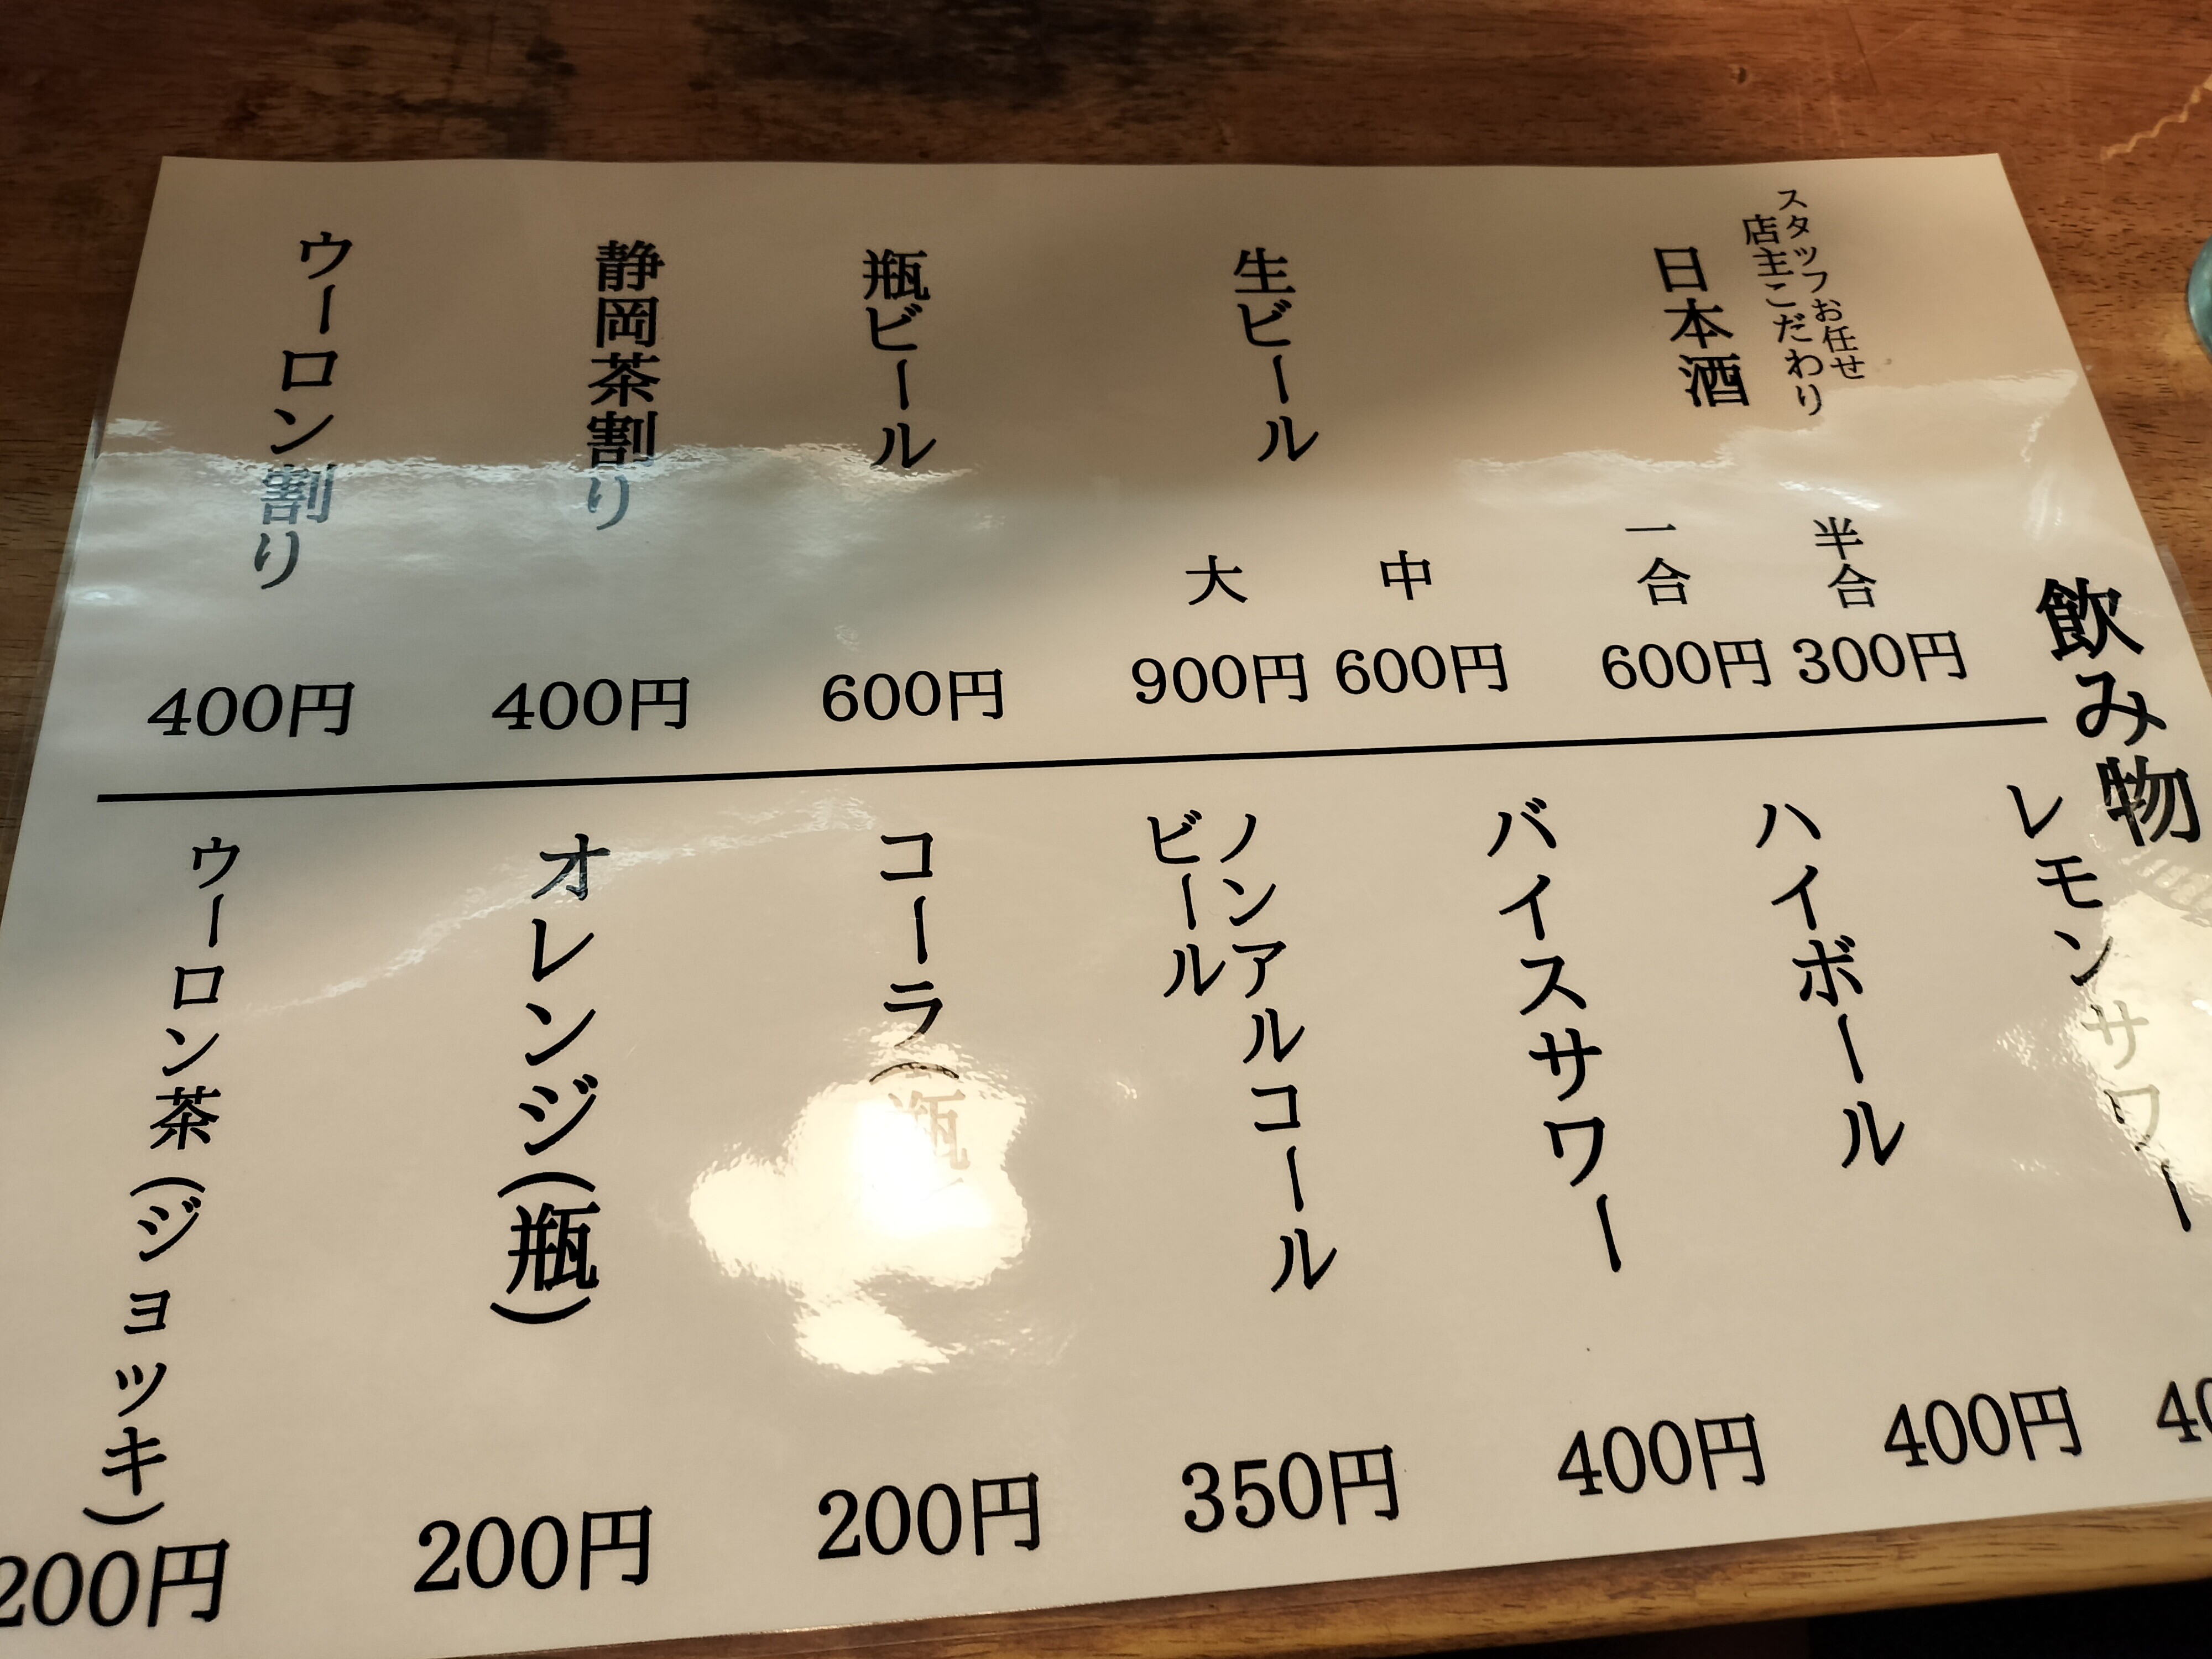 飲み物
スタッフお任せ
店主こだわり
日本酒
半合
300円
一合
600円
生ビール
中
600円
大
900円
瓶ビール
600円
静岡茶割り
400円
ウーロン割り
400円
レモンサワー
ハイボール
400円
バイスサワー
400円
ノンアルコール
ビール
350円
コーラ(瓶
200円
オレンジ(瓶)
200円
ウーロン茶(ジョッキ)
200円